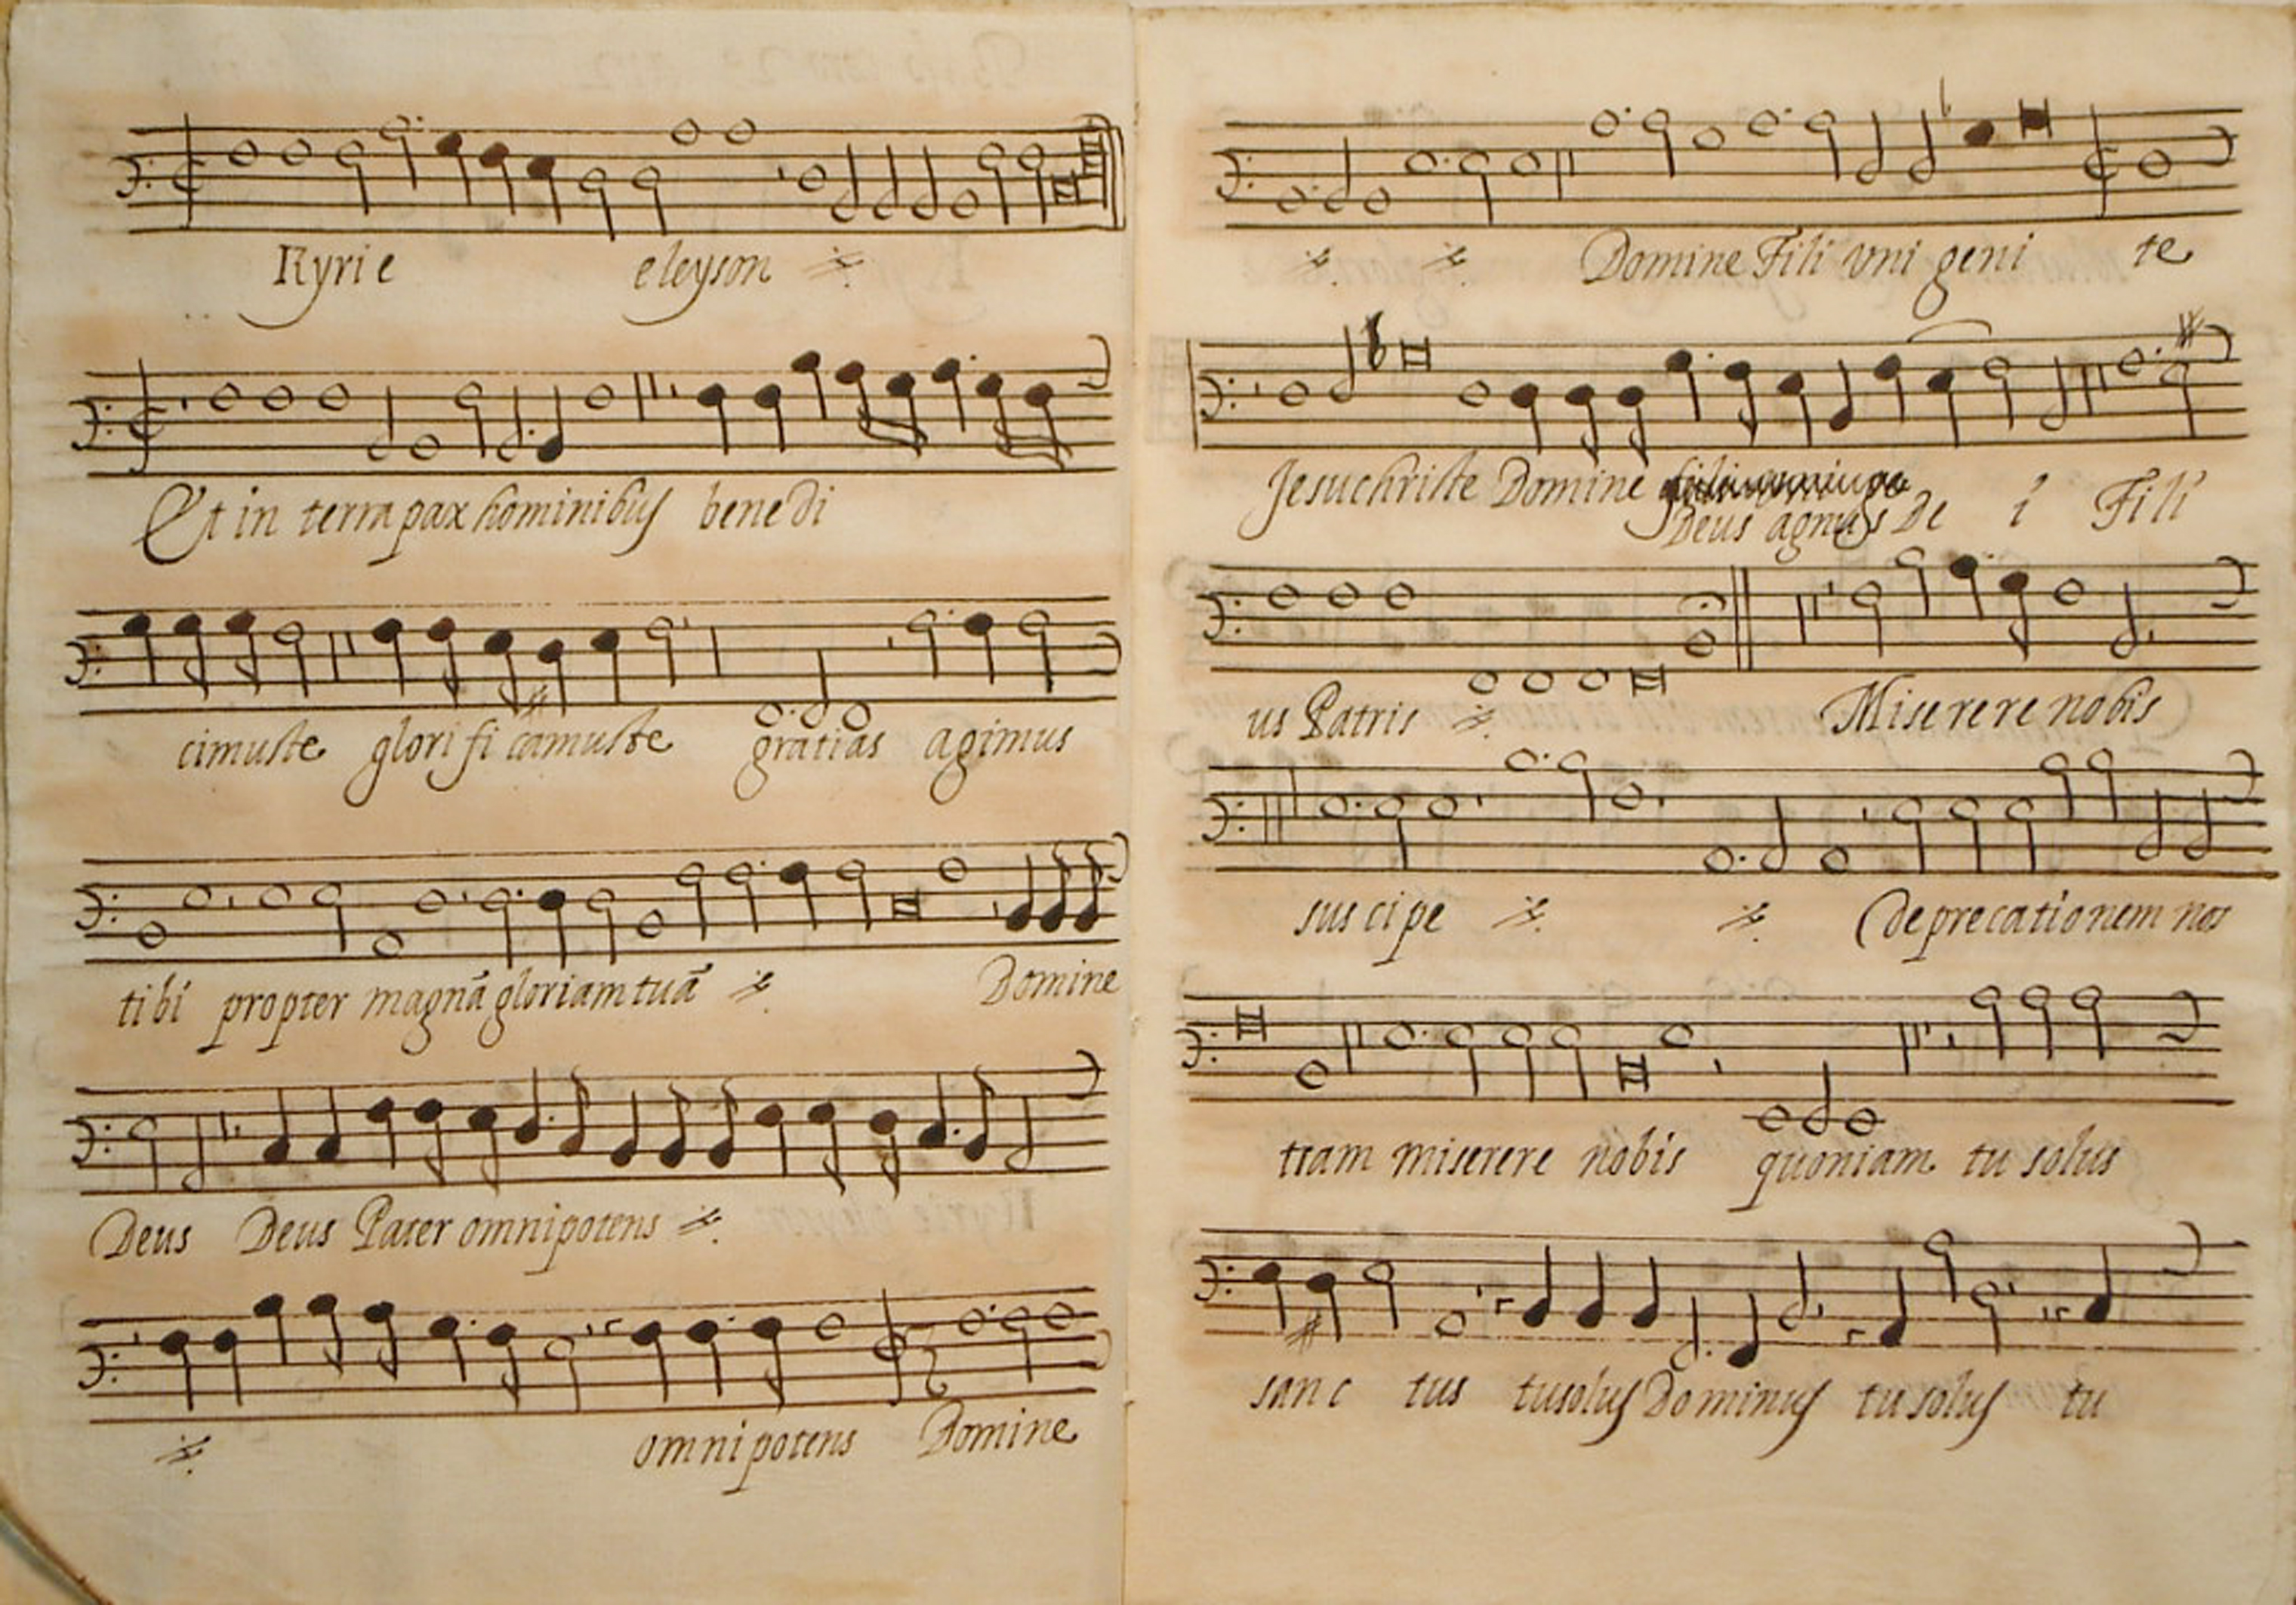 Kyrie eleyson
Et in terra pax hominibus benedi
cimuste glorificamuste gratias agimus
tibi propter magnã gloriam tuã Domine
Deus Deus Pater omnipotens
omnipotens Domine
Domine Fili vni geni te
Jesuchriste Domine
Deus agnus De i Fili
us Patris Miserere nobis
suscipe deprecationem nos
tram miserere nobis quoniam tu solus
sanc tus tusolus Dominus tu solus tu